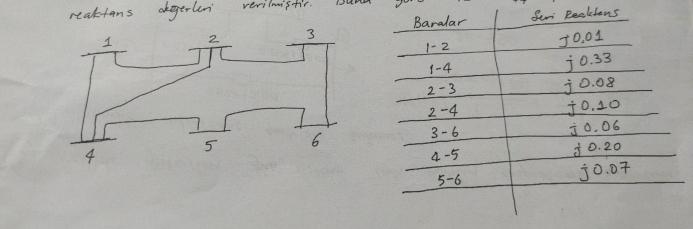 reaktans değerleri verilmiştir. Buna
Baralar Seri Reaktans
1-2 j0,01
1-4 j0.33
2-3 j0.08
2-4 j0.10
3-6 j0.06
4-5 j0.20
5-6 j0.07
1 2 3
4 5 6